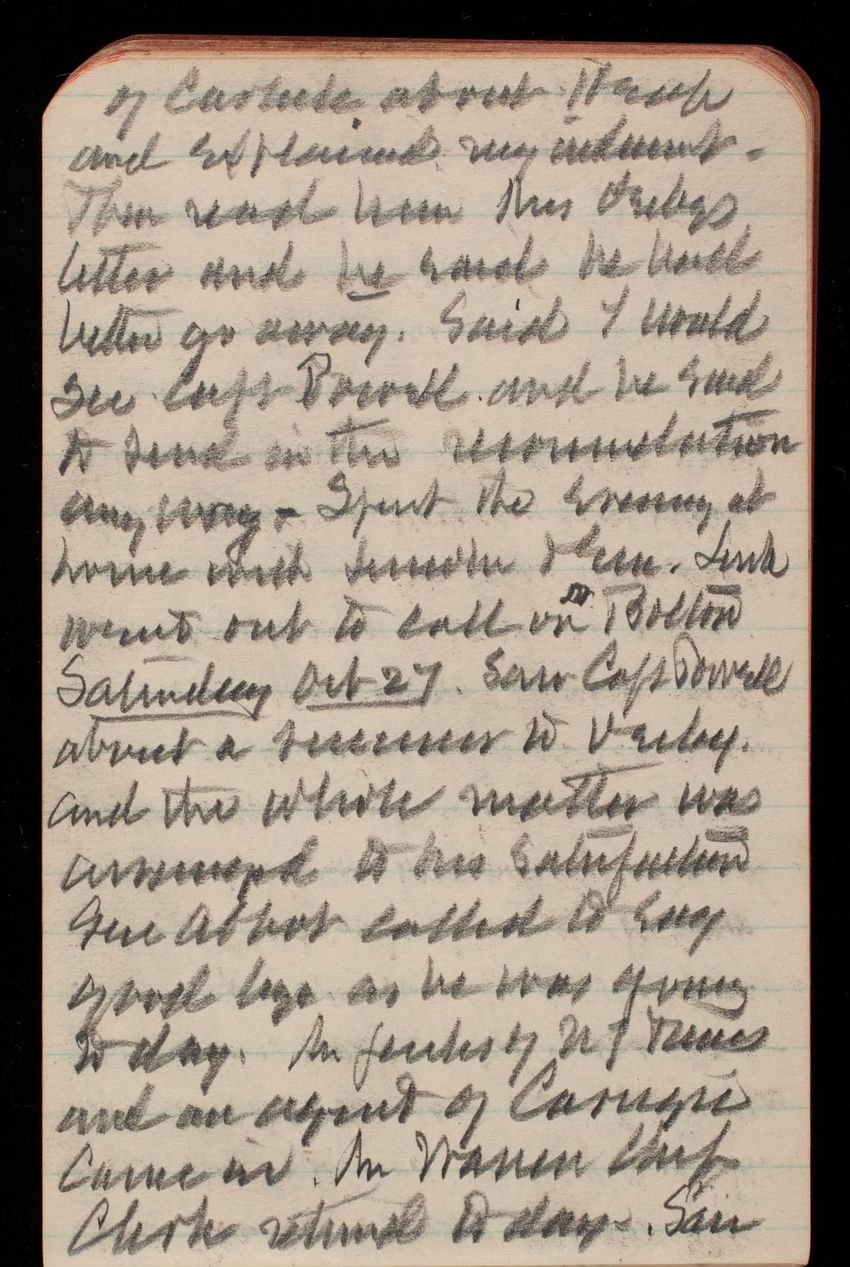 of Carlisle about
and explained my
Then read him Mrs
letter and he said he had
better go away. Said I would
see Capt Powell and he said
to send in the
anyway - Spent the evening at
home with
went out to call on Bolton
Saturday Oct 27. Saw Capt Powell
about a to
and the whole matter was
arranged to his satisfaction
Gen Abbot called to say
good bye as he was going
to day. Mr of N Y Times
and an agent of Carnegie
Came in. Mr Warren Chief
Clerk returned to day. Saw